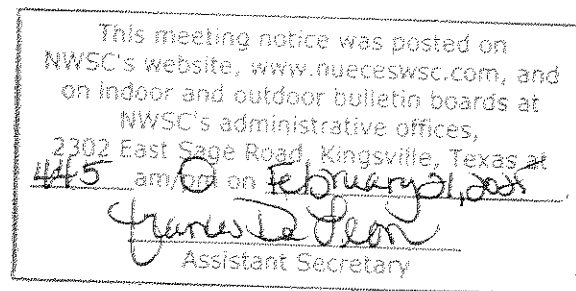 This meeting notice was posted on
NWSC's website, www.nueceswsc.com, and
on indoor and outdoor bulletin boards at
NWSC's administrative offices,
2302 East Sage Road, Kingsville, Texas at
445 am/pm on February 21, 2025
Frances De Leon
Assistant Secretary